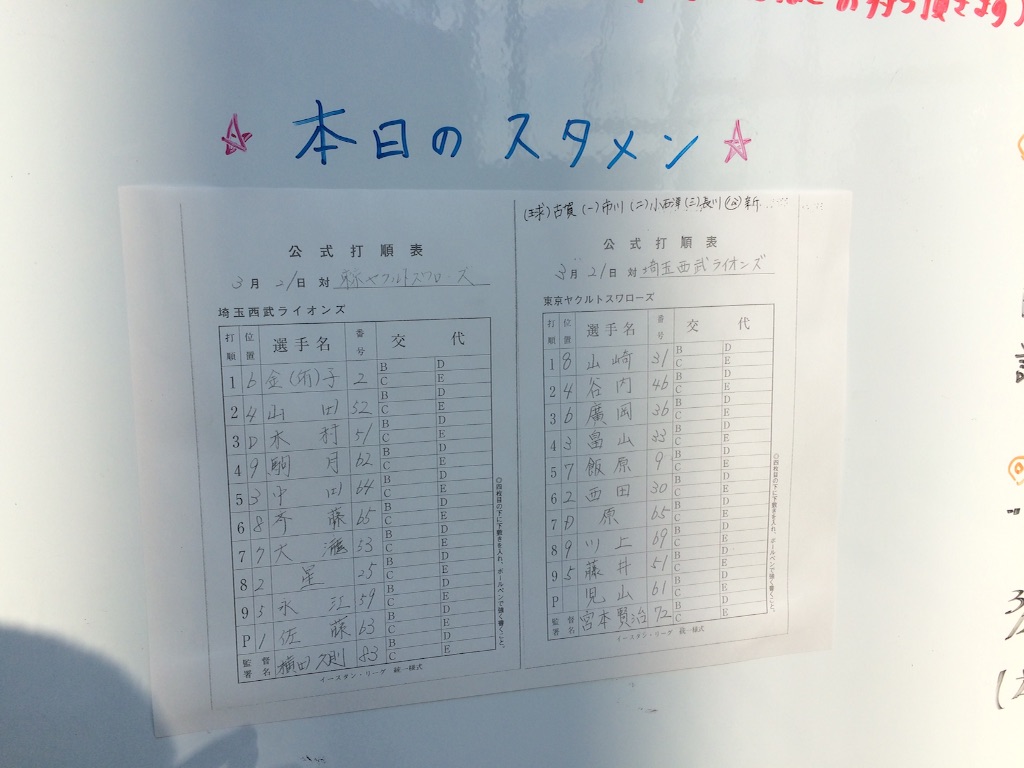 お持ち頂きます)
☆ 本日のスタメン ☆
公式打順表
3月 21日 対 東京ヤクルトスワローズ
埼玉西武ライオンズ
打順 位置 選手名 番号 交 代
1 6 金(術)子 2 B C D E
2 4 山田 52 B C D E
3 D 木村 51 B C D E
4 9 駒月 62 B C D E
5 3 中田 64 B C D E
6 8 斉藤 65 B C D E
7 7 大瀧 53 B C D E
8 2 星 25 B C D E
9 5 永江 59 B C D E
P 1 佐藤 63 B C D E
監督署名 横田久則 83
イースタン・リーグ 統一様式
○四枚目の下に下敷きを入れ、ボールペンで強く書くこと。
(球)古賀 (一)市川 (二)小西澤 (三)長川 新
公式打順表
3月 21日 対 埼玉西武ライオンズ
東京ヤクルトスワローズ
打順 位置 選手名 番号 交 代
1 8 山崎 31 B C D E
2 4 谷内 46 B C D E
3 6 廣岡 36 B C D E
4 3 畠山 33 B C D E
5 7 飯原 9 B C D E
6 2 西田 30 B C D E
7 D 原 65 B C D E
8 9 川上 69 B C D E
9 5 藤井 51 B C D E
P 児山 61 B C D E
監督署名 宮本賢治 72
イースタン・リーグ 統一様式
○四枚目の下に下敷きを入れ、ボールペンで強く書くこと。